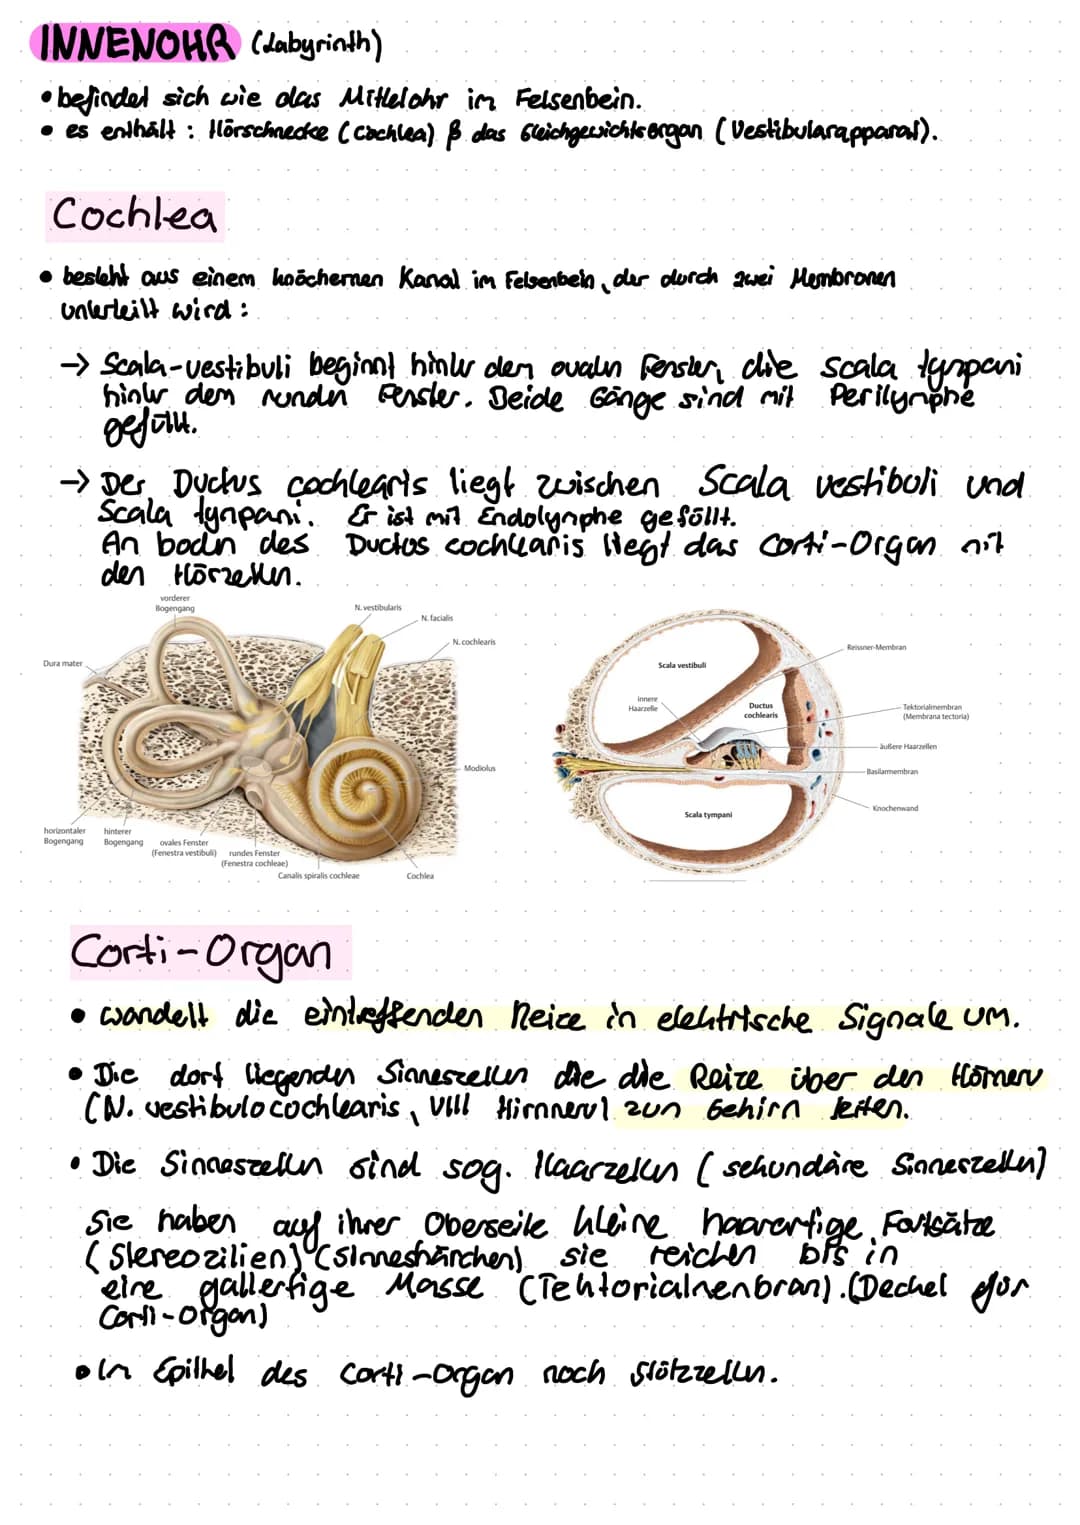 INNENOHR (Labyrinth)
• befindet sich wie das Mittelohr im Felsenbein.
• es enthält : Hörschnecke (Cochlea) & das Gleichgewichtsorgan (Vestibularapparat).
Cochlea
• besteht aus einem knöchernen Kanal im Felsenbein, der durch zwei Membranen
unterteilt wird :
→ Scala-vestibuli beginnt hinter dem ovalen Fenster, die scala tympani
hinter dem runden Fenster. Beide Gänge sind mit Perilymphe
gefüllt.
→ Der Ductus cochlearis liegt zwischen Scala vestibuli und
Scala tympani. Er ist mit Endolymphe gefüllt.
Am boden des Ductus cochlearis liegt das Corti-Organ mit
den Hörzellen.
vorderer
Bogengang
N. vestibularis
N. facialis
N. cochlearis
Dura mater
Modiolus
horizontaler
Bogengang
hinterer
Bogengang
ovales Fenster
(Fenestra vestibuli)
rundes Fenster
(Fenestra cochleae)
Canalis spiralis cochleae
Cochlea
Reissner-Membran
Scala vestibuli
innere
Haarzelle
Ductus
cochlearis
Tektorialmembran
(Membrana tectoria)
äußere Haarzellen
Basilarmembran
Knochenwand
Scala tympani
Corti-Organ
• wandelt die eintreffenden Reize in elektrische Signale um.
• Die dort liegenden Sinneszellen die die Reize über den Hörnerv
(N. vestibulocochlearis, VIII Hirnnerv) zum Gehirn leiten.
• Die Sinneszellen sind sog. Haarzellen (sekundäre Sinneszellen)
Sie haben auf ihrer Oberseite kleine haarartige Fortsätze
(Stereozilien) (Sinneshärchen) sie reichen bis in
eine gallertige Masse (Tektorialmembran). (Deckel für
Corti-Organ)
• Im Epithel des Corti-Organ noch Stützzellen.